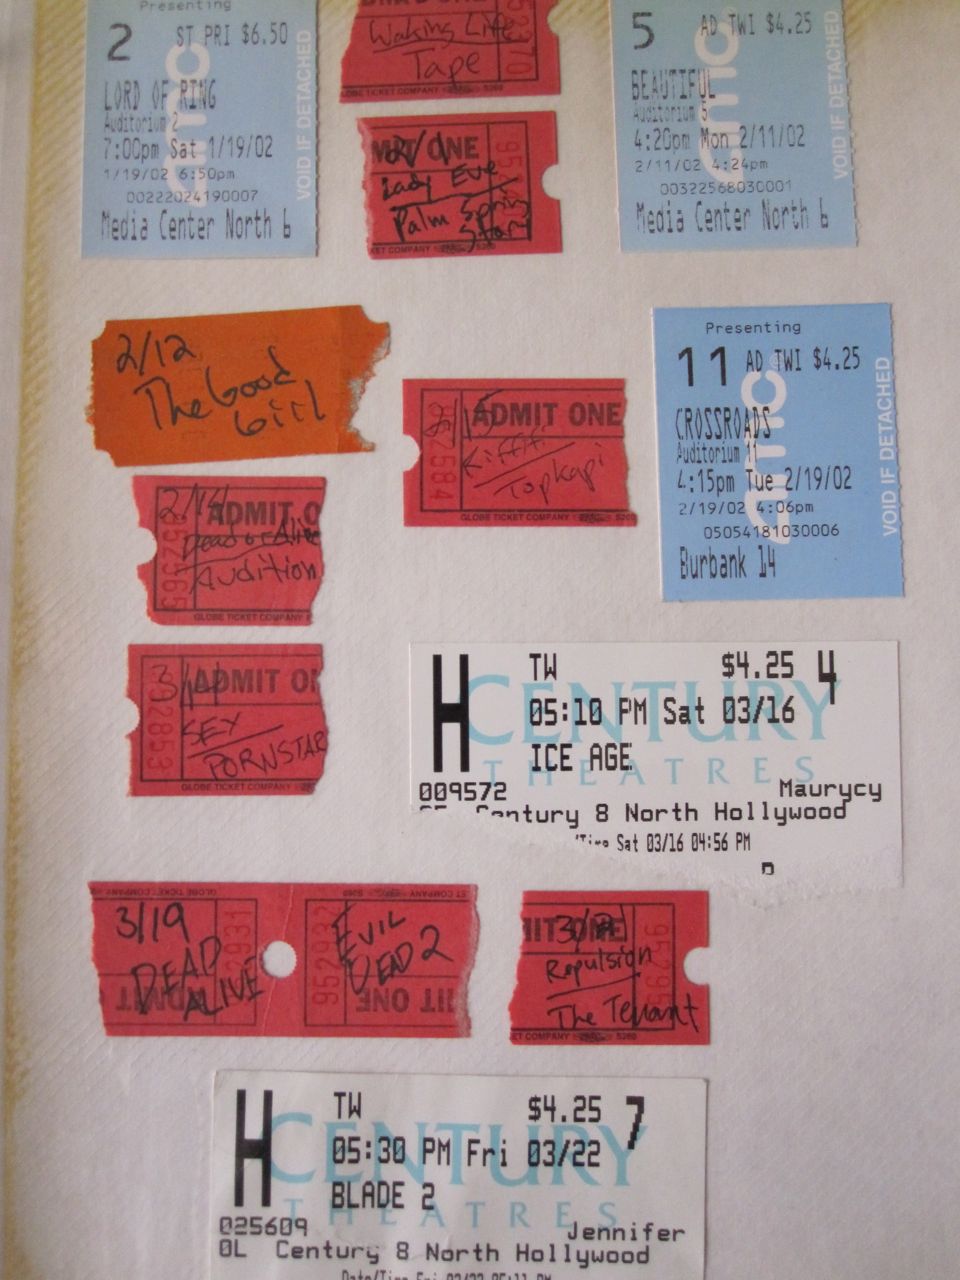 Presenting
2 ST PRI $6.50
LORD OF RING
Auditorium 2
7:00pm Sat 1/19/02
1/19/02 6:50pm
00222024190007
Media Center North 6
VOID IF DETACHED
amc
Waking Life
Tape
952370
GLOBE TICKET COMPANY
5 AD TWI $4.25
BEAUTIFUL
Auditorium 5
4:20pm Mon 2/11/02
2/11/02 4:24pm
00322568030001
Media Center North 6
VOID IF DETACHED
amc
MIT ONE
Lady Eve
Palm Spring
Story
KET COMPANY
2/12
The Good
Girl
ADMIT ONE
Topkapi
GLOBE TICKET COMPANY
Presenting
11 AD TWI $4.25
CROSSROADS
Auditorium 11
4:15pm Tue 2/19/02
2/19/02 4:06pm
05054181030006
Burbank 14
VOID IF DETACHED
amc
ADMIT O
Dead or Alive
Audition
GLOBE TICKET COMPANY
3/14
ADMIT ON
SEX
PORNSTAR
GLOBE TICKET COMPANY
H TW $4.25 4
05:10 PM Sat 03/16
ICE AGE
CENTURY
THEATRES
009572 Maurycy
Century 8 North Hollywood
/Time Sat 03/16 04:56 PM
GLOBE TICKET COMPANY
3/19
DEAD
ALIVE
ADMIT
EVIL
DEAD 2
MIT ONE
MIT ONE
Repulsion
The Tenant
ET COMPANY
H TW $4.25 7
05:30 PM Fri 03/22
BLADE 2
CENTURY
THEATRES
025609 Jennifer
OL Century 8 North Hollywood
Date/Time Fri 03/22 05:11 PM